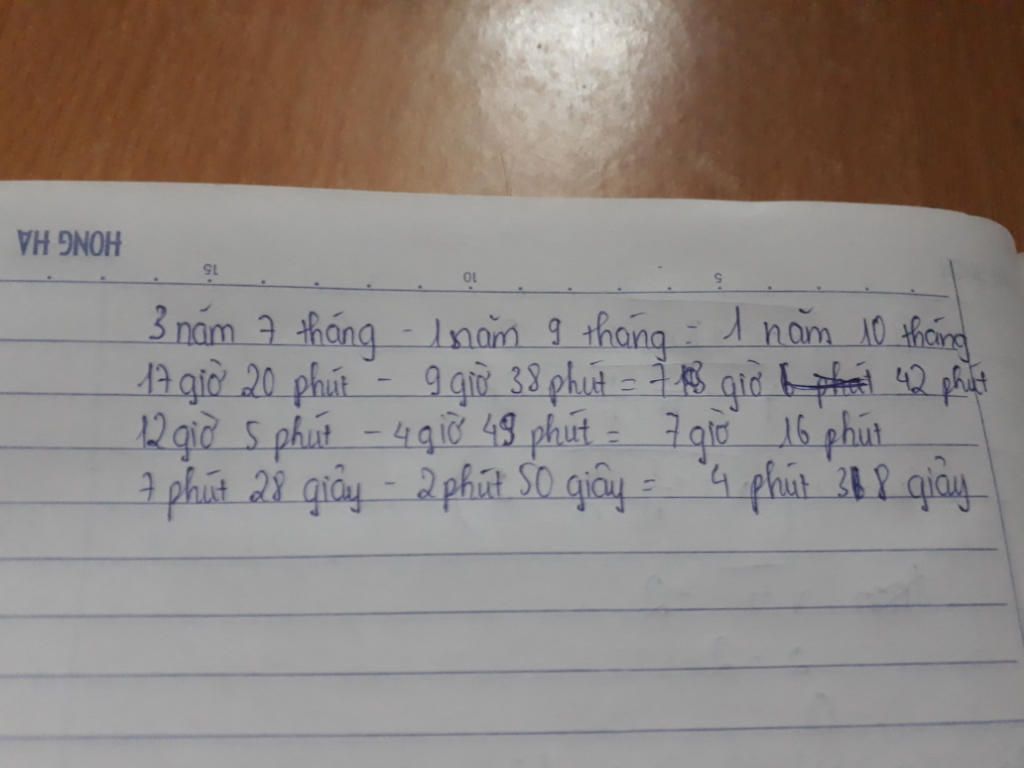 HONG HA
15 10 5
3 năm 7 tháng - 1 năm 9 tháng = 1 năm 10 tháng
17 giờ 20 phút - 9 giờ 38 phút = 7 giờ 42 phút
12 giờ 5 phút - 4 giờ 49 phút = 7 giờ 16 phút
7 phút 28 giây - 2 phút 50 giây = 4 phút 38 giây